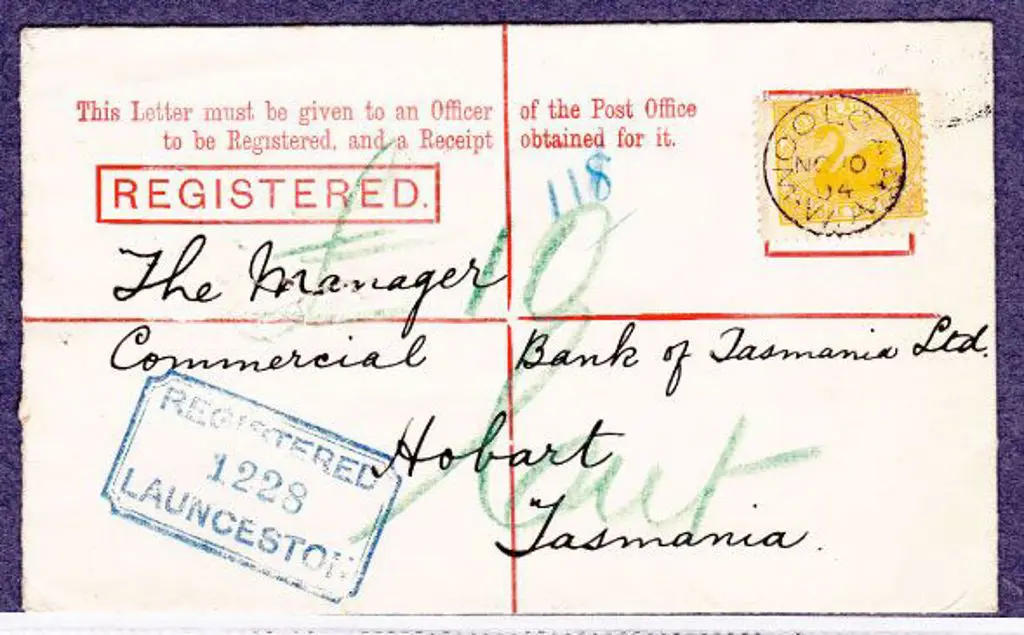 This Letter must be given to an Officer of the Post Office
to be Registered, and a Receipt obtained for it.
REGISTERED.
118
2
NO 10
04
The Manager
Commercial Bank of Tasmania Ltd.
Hobart
Tasmania.
REGISTERED
1228
LAUNCESTON